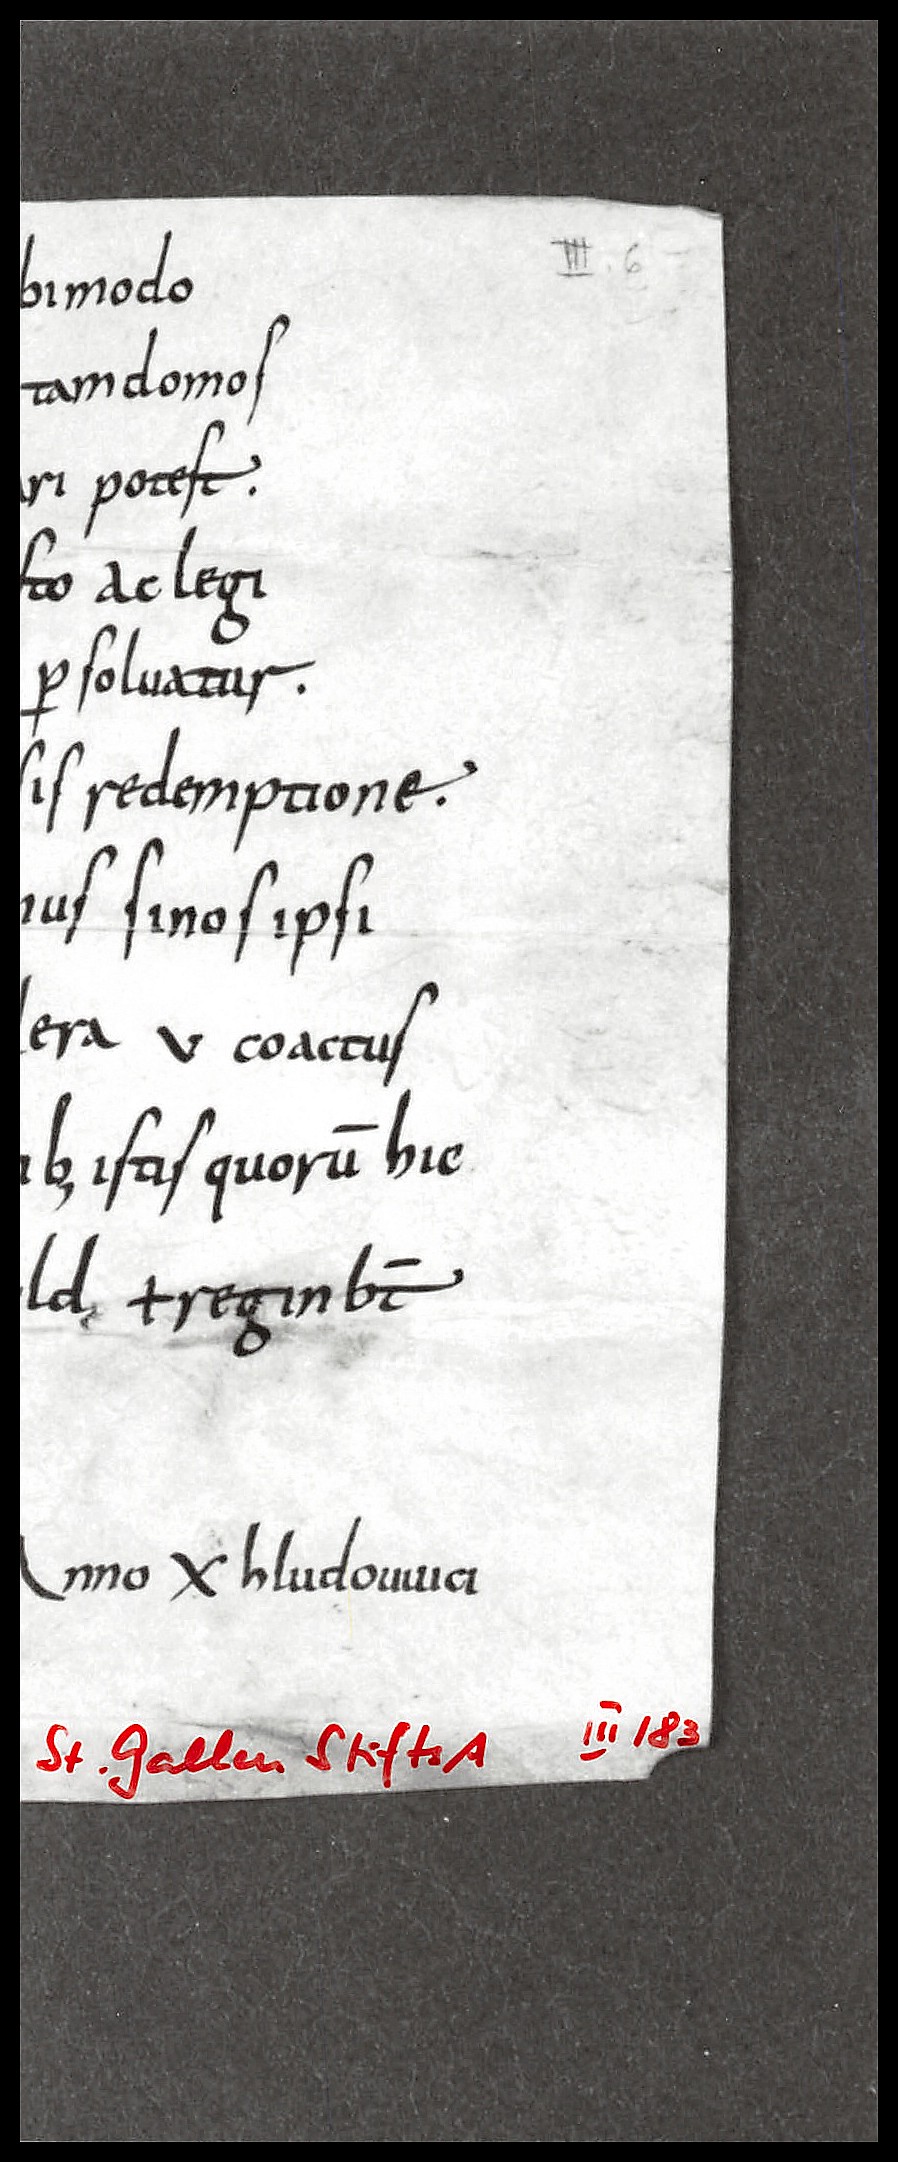 VIII. 6
bimodo
tamdomos
ari potest.
sto ac legi
p̲soluatur.
sis redemptione.
nus sinos ipsi
lera v coactus
ib; istis quorū hic
ld; + reginbt̄
Anno X hludouuici
St. Gallen StiftsA III 183